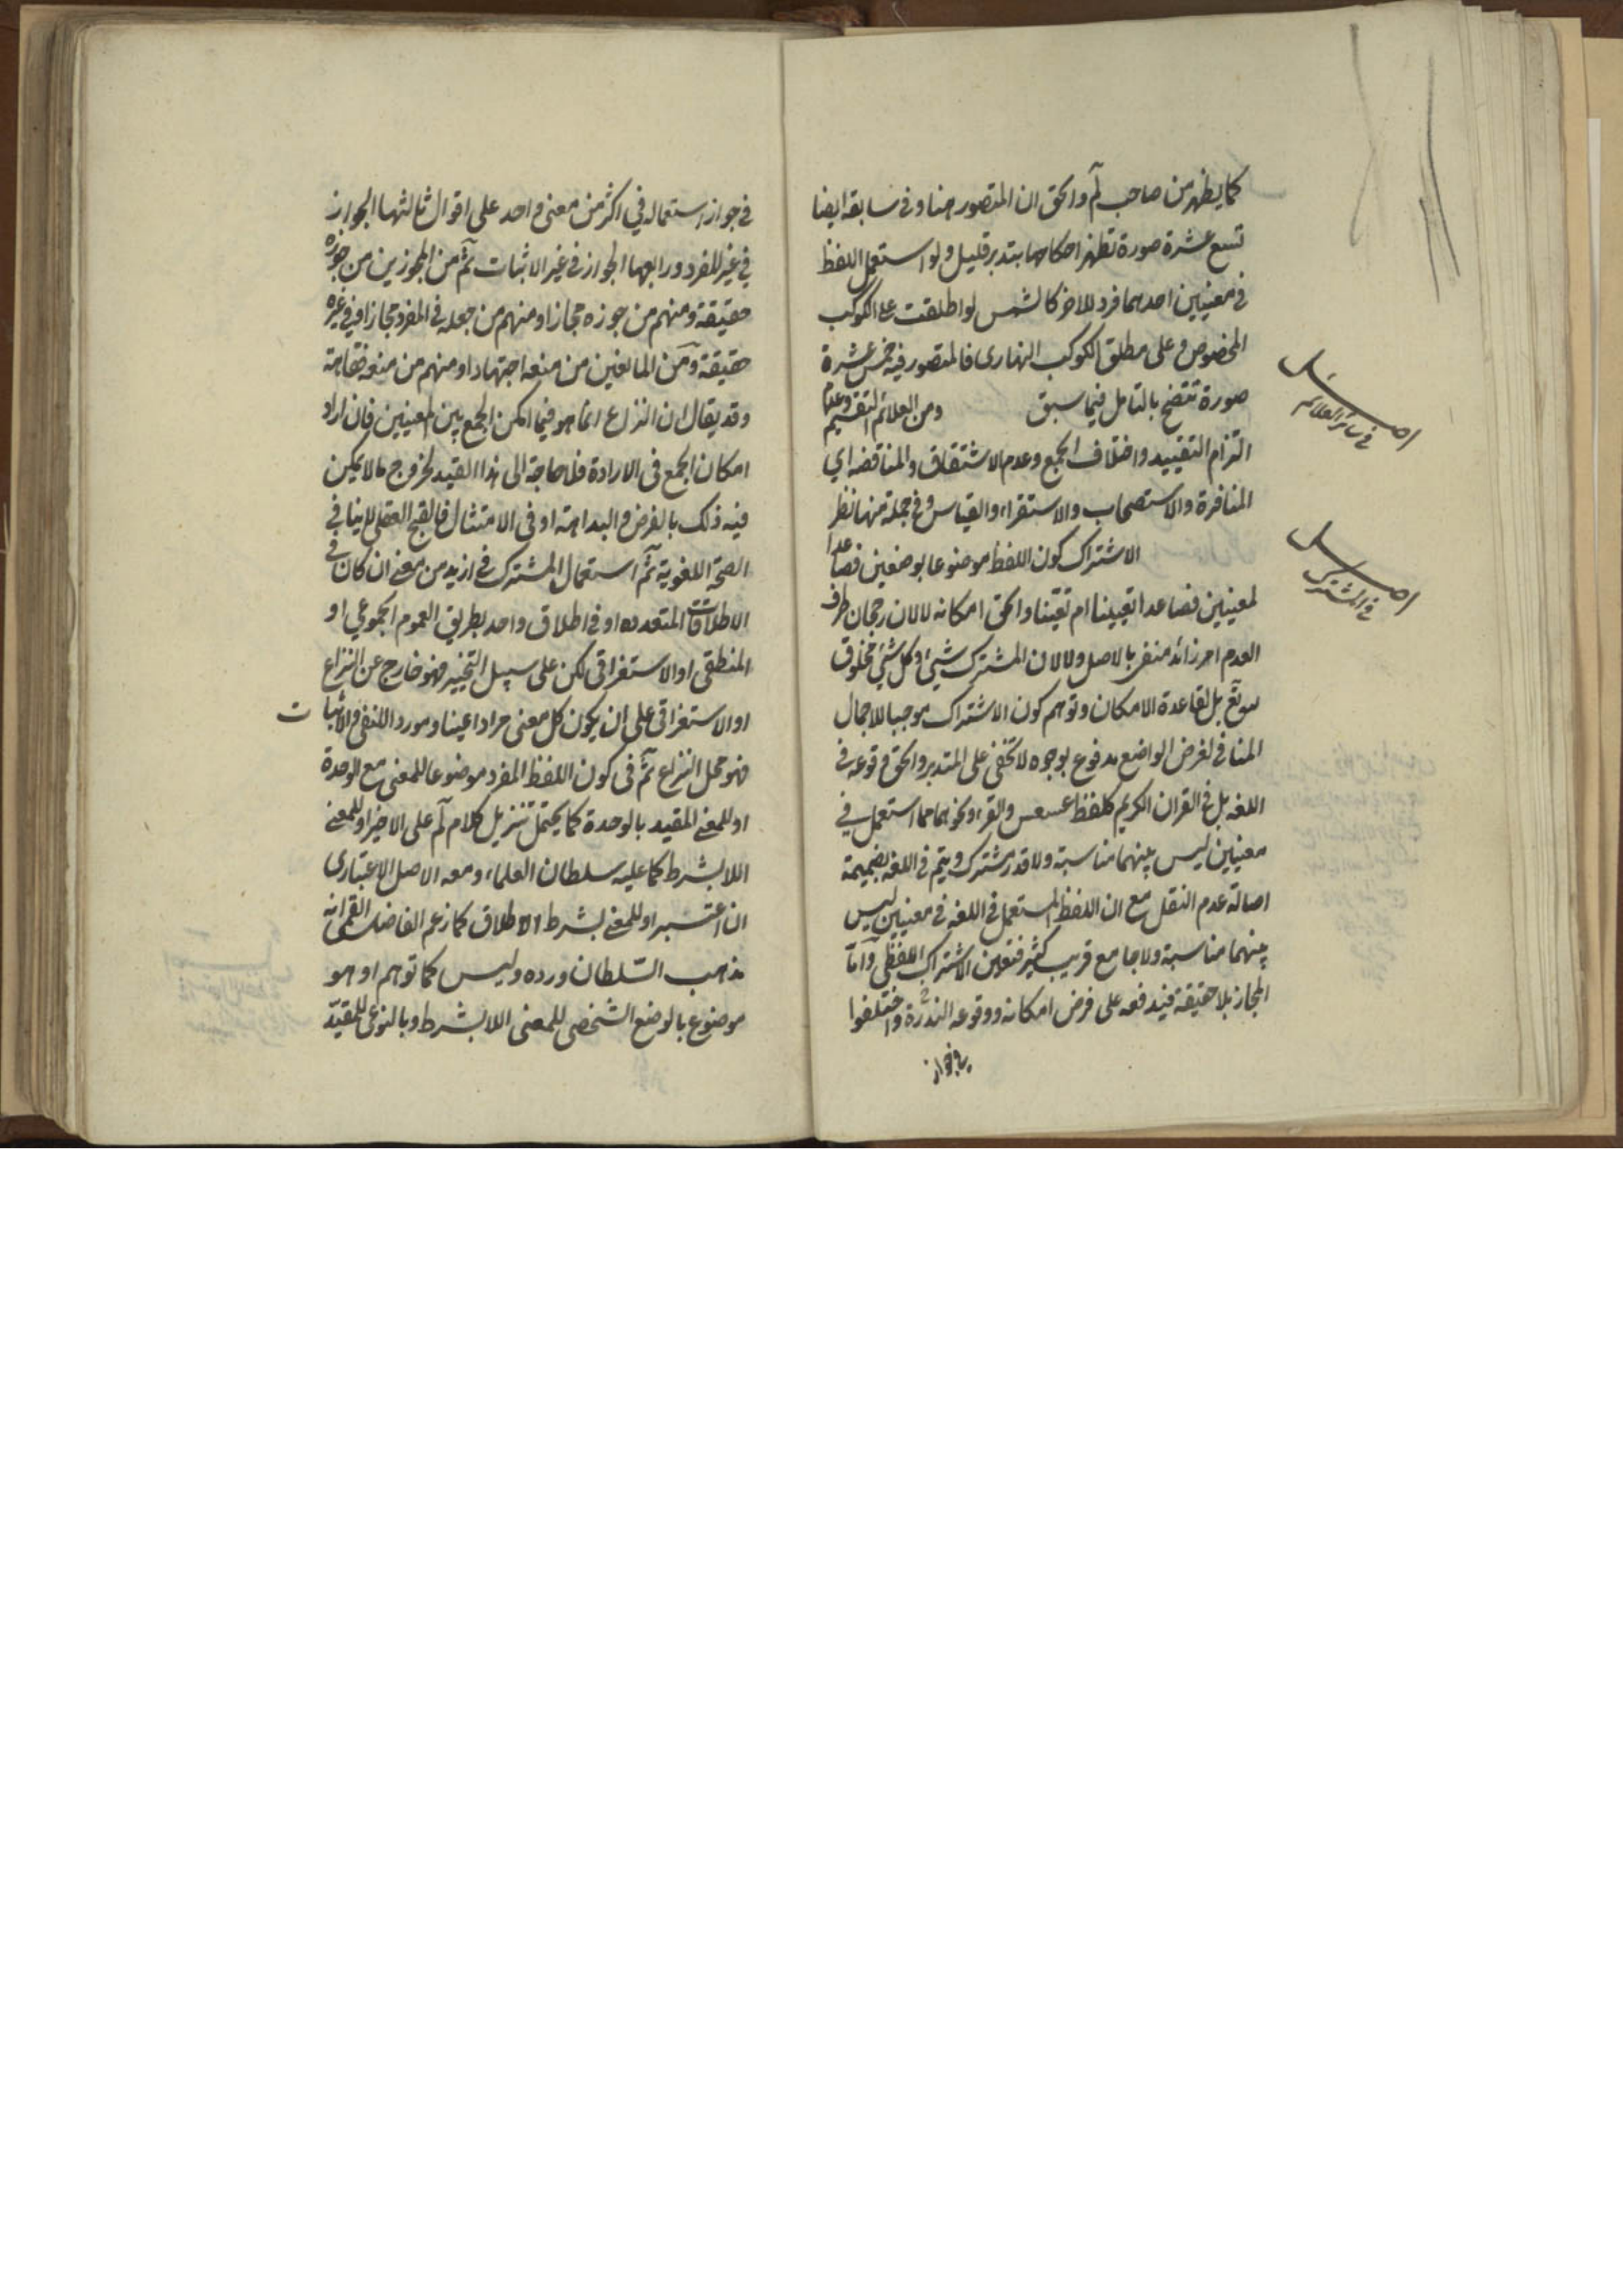 كما يظهر من صاحب لم والحق ان المتصور هنا وفى سابقه ايضا
تسع عشرة صورة تظهر احكامها بتدبر قليل ولو استعمل اللفظ
فى معنيين احدهما فرد للاخر كالشمس لو اطلقت على الكوكب
المخصوص وعلى مطلق الكوكب النهارى فالمتصور فيه خمس عشرة
صورة تتضح بالتامل فيما سبق ومن العلائم التقسيم وعدم
اصــل
فى سائر العلائم
التزام التقييد واختلاف الجمع وعدم الاشتقاق والمناقضه اي
المنافرة والاستصحاب والاستقراء والقياس وفى جملة منها نظر
الاشتراك كون اللفظ موضوعا بوضعين فصاعدا
اصــل
فى المشترك
لمعنيين فصاعدا تعيينا ام تعيّنا والحق امكانه لا لان رجحان طرف
العدم امر زائد منفى بالاصل ولا لان المشترك شيئ وكل شيئ مخلوق
بل لقاعدة الامكان وتوهم كون الاشتراك موجبا للاجمال
المنافى لغرض الواضع مدفوع بوجوه لا تخفى على المتدبر والحق وقوعه فى
اللغه بل فى القران الكريم كلفظ عسعس والقرء ونحوهما مما استعمل في
معنيين ليس بينهما مناسبة ولا قدر مشترك ويتم فى اللغه بضميمة
اصالة عدم النقل مع ان اللفظ المستعمل فى اللغه فى معنيين ليس
بينهما مناسبة ولا جامع قريب كثير فتعين الاشتراك اللفظى وامّا
المجاز بلا حقيقة فيدفعه على فرض امكانه ووقوعه الندرة واختلفوا
فى جواز
فى جواز استعماله في اكثر من معنى واحد على اقوال ثالثها الجواز
في غير المفرد ورابعها الجواز فى غير الاثبات ثم من المجوزين من جوزه
حقيقة ومنهم من جوزه مجازا ومنهم من جعله فى المفرد مجازا وفى غيره
حقيقة ومن المانعين من منعه اجتهادا ومنهم من منعه فقاهة
وقد يقال ان النزاع انما هو فيما امكن الجمع بين المعنيين فان اراد
امكان الجمع فى الارادة فلا حاجة الى هذا القيد لخروج ما لا يمكن
فيه ذلك بالفرض والبداهة او فى الامتثال فالقبح العقلى لا ينافى
الصحة اللغوية ثم استعمال المشترك فى ازيد من معنى ان كان فى
الاطلاقات المتعدده او فى اطلاق واحد بطريق العموم المجموعي او
المنطقى او الاستغراقى لكن على سبيل التخيير فهو خارج عن النزاع
او الاستغراقى على ان يكون كل معنى مرادا عينا ومورد اللنفى والاثبات
فهو محل النزاع ثم فى كون اللفظ المفرد موضوعا للمعنى مع الوحدة
او للمعنى المقيد بالوحدة كما يحتمل تنزيل كلام لم على الاخير او للمعنى
اللا بشرط كما عليه سلطان العلماء ومعه الاصل الاعتبارى
ان اعتبر او للمعنى بشرط الاطلاق كما زعم الفاضل القمى انه
مذهب السّلطان ورده وليس كما توهم او هو
موضوع بالوضع الشخصى للمعنى اللا بشرط وبالنوعى للمقيّد